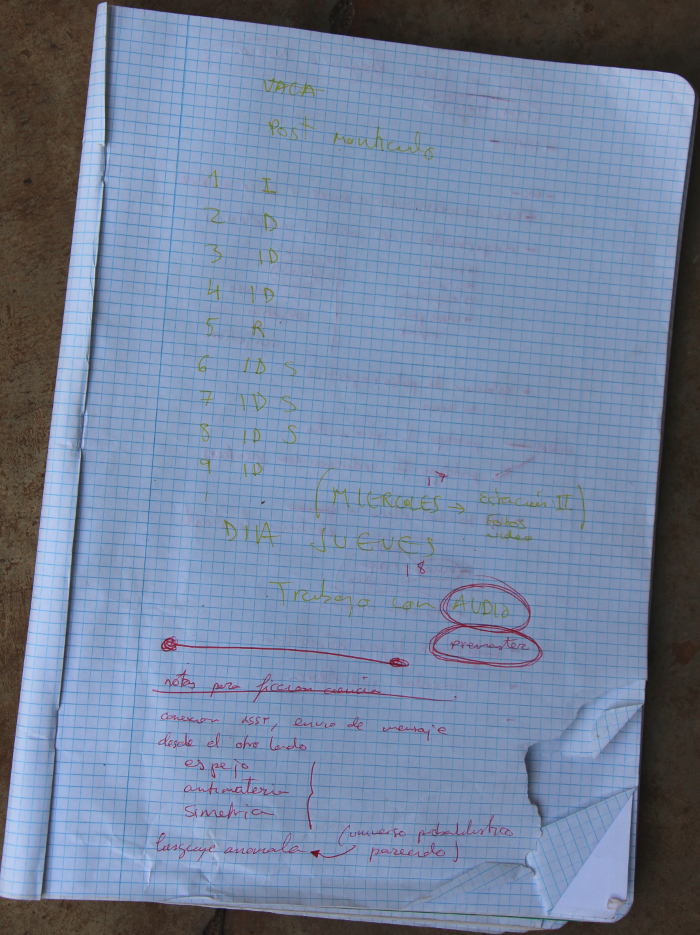 VACA
Post
1 I
2 D
3 ID
4 ID
5 R
6 ID S
7 ID S
8 ID S
9 ID
17
(MIERCOLES → Estación II)
Fotos
video
DIIA JUEVES
18
Trabajo con AUDIO
premaster
notas para ficcion ciencia
conexion, envio de mensaje
desde el otro lado
espejo
antimateria
simetria
(universo probabilistico
parecido)
lenguaje anomalo